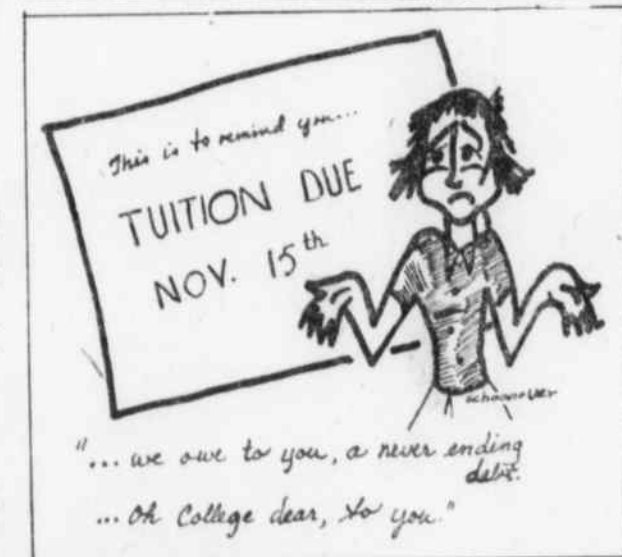 This is to remind you...
TUITION DUE
NOV. 15th
schoonover
"... we owe to you, a never ending
debt.
... Oh College dear, to you."